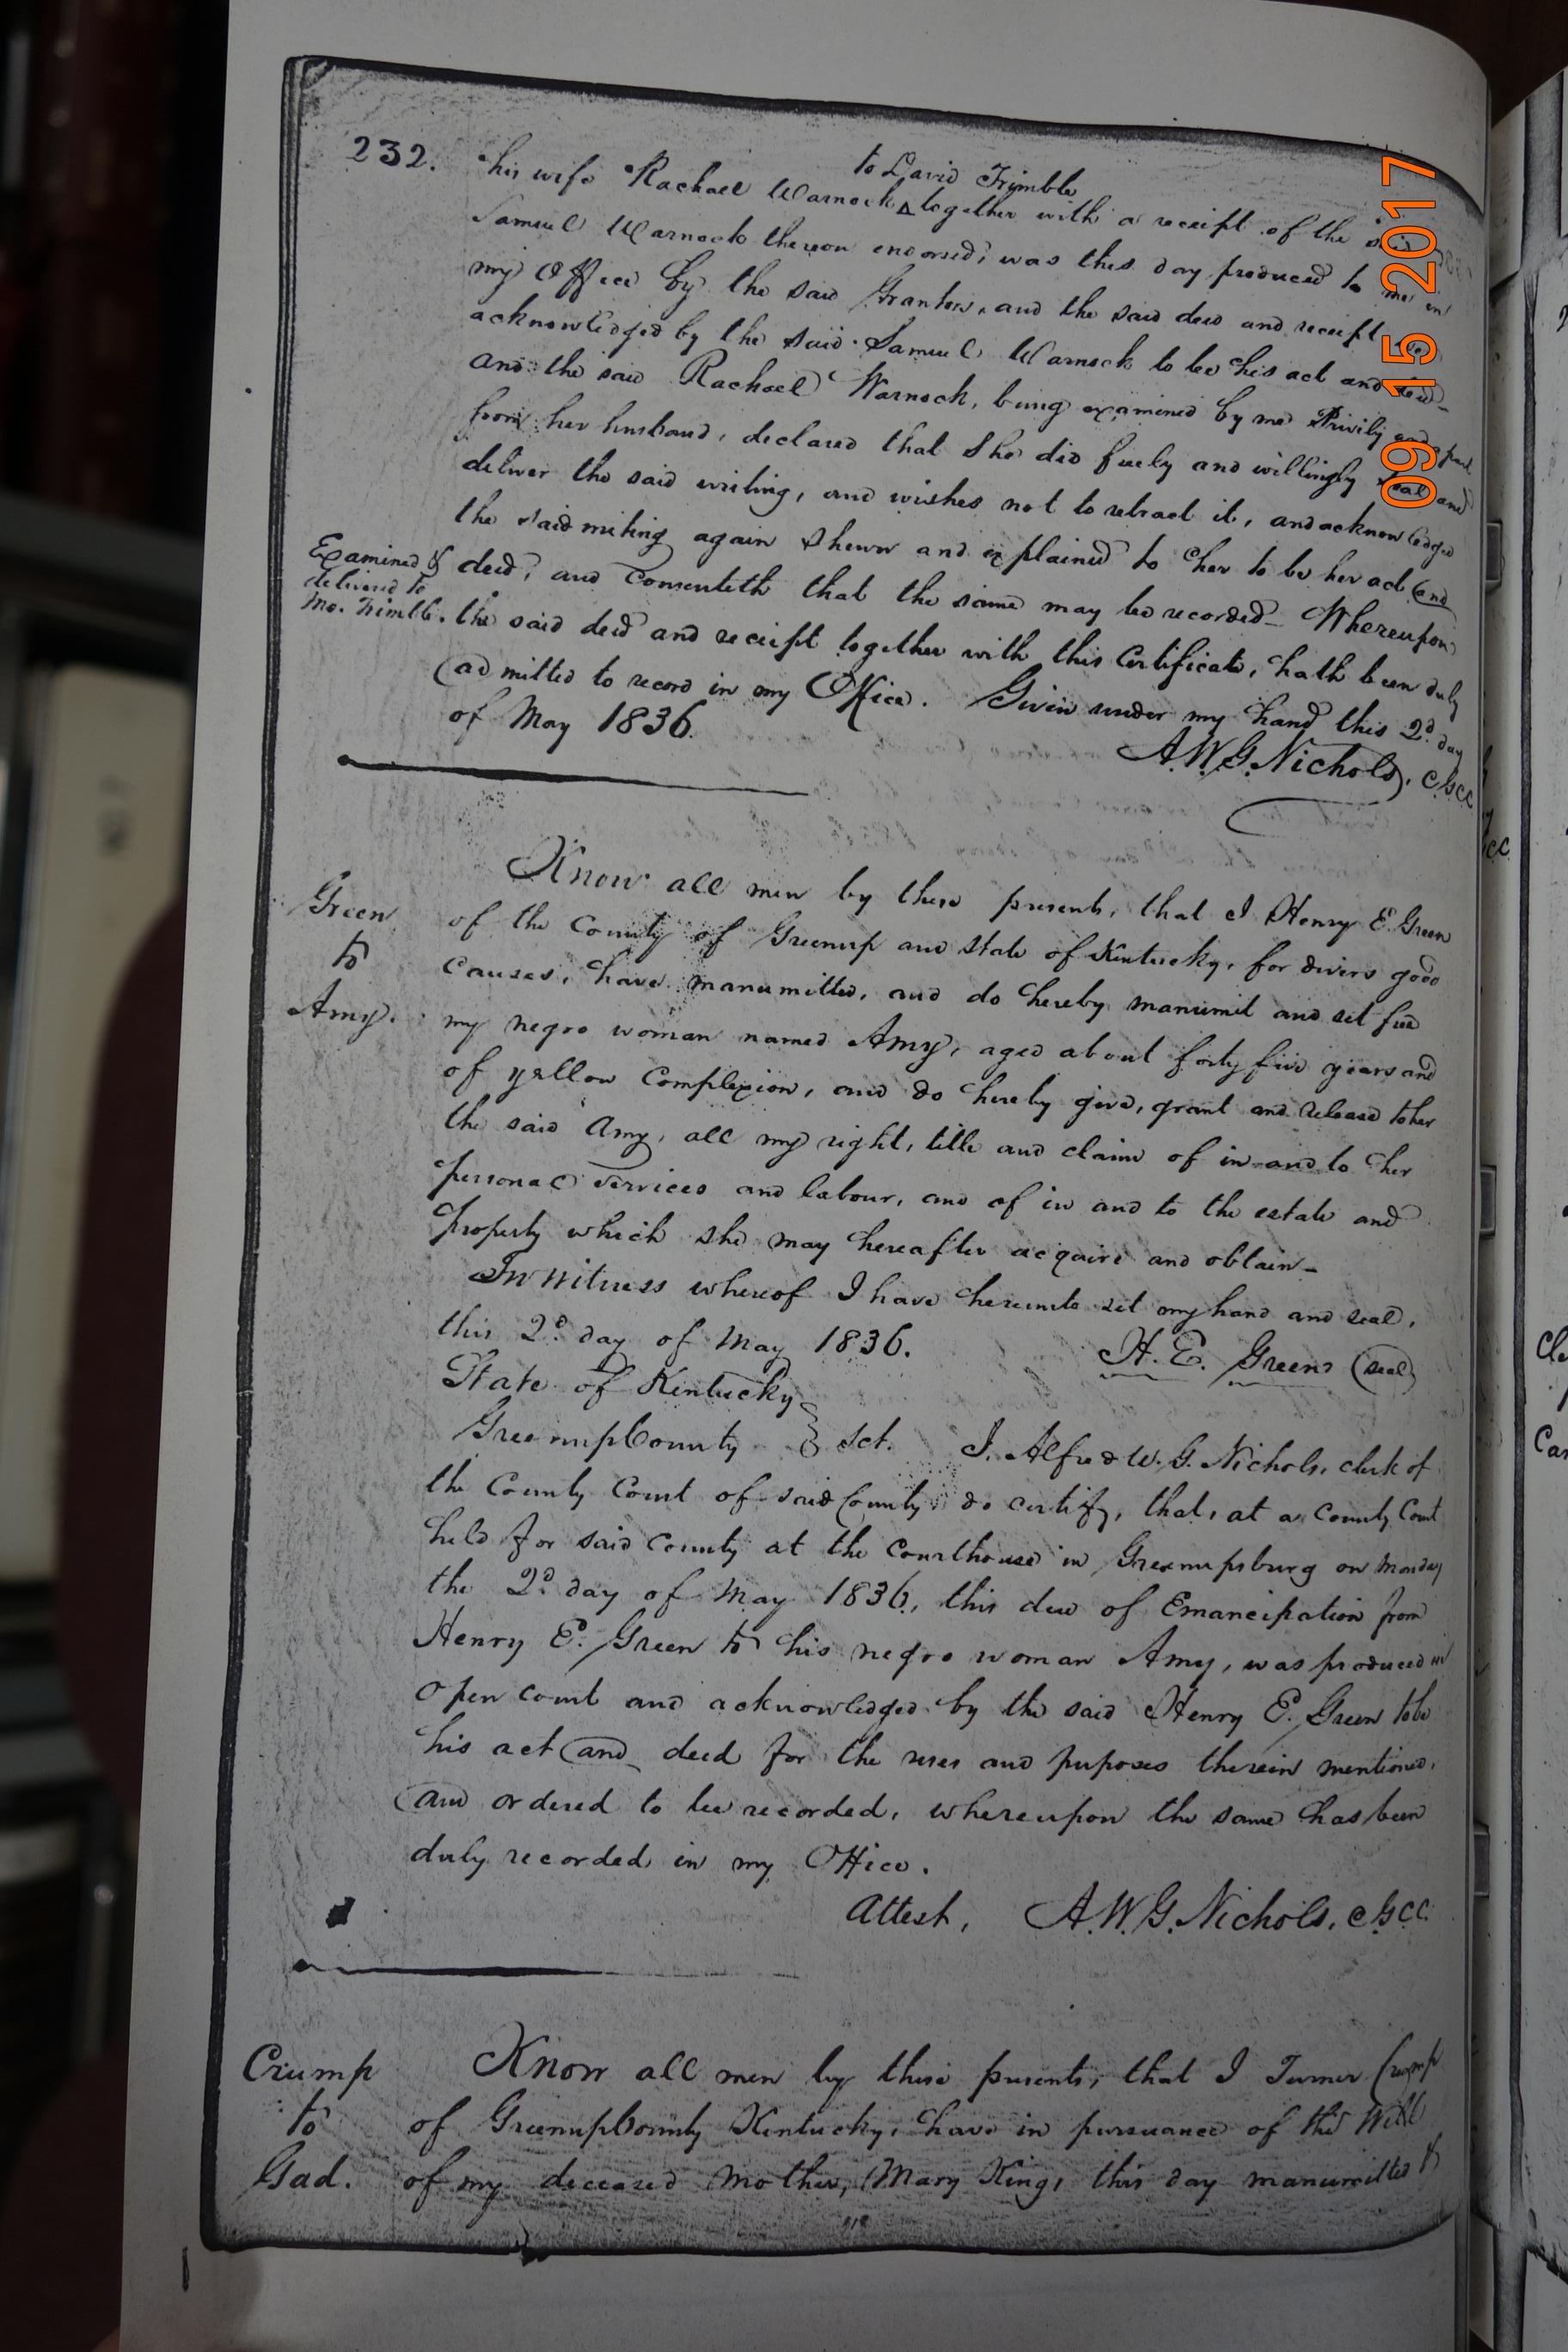 232.
his wife Rachael Warnock to David Trimble together with a receipt of the
Samuel Warnock thereon endorsed, was this day produced to me in
my Office by the said Grantors, and the said deed and receipt
acknowledged by the said Samuel Warnock to be his act and deed—
and the said Rachael Warnock, being examined by me Privily and apart
from her husband, declared that she did freely and willingly seal and
deliver the said writing, and wishes not to retract it, and acknowledged
the said writing again shewn and explained to her to be her act and
Examined & delivered to Mo. Trimble.
deed, and consenteth that the same may be recorded— Whereupon
the said deed and receipt together with this Certificate, hath been duly
admitted to record in my Office. Given under my hand this 2d day
of May 1836.
A.W.G. Nichols, CGCC
Green
to
Amy.
Know all men by these presents, that I Henry E. Green
of the County of Greenup and State of Kentucky, for divers good
causes, have manumitted, and do hereby manumit and set free
my negro woman named Amy, aged about forty five years and
of yellow complexion, and do hereby give, grant and release to her
the said Amy, all my right, title and claim of in and to her
personal services and labour, and of in and to the estate and
property which she may hereafter acquire and obtain—
In Witness whereof I have hereunto set my hand and seal,
this 2d day of May 1836.
H. E. Green (seal)
State of Kentucky
Greenup County } Sct. I, Alfred W. G. Nichols, clerk of
the County Court of said County do certify, that, at a County Court
held for said County at the Courthouse in Greenupsburg on Monday
the 2d day of May 1836, this deed of Emancipation from
Henry E. Green to his negro woman Amy, was produced in
open court and acknowledged by the said Henry E. Green to be
his act and deed for the uses and puposes therein mentioned,
and ordered to be recorded, whereupon the same has been
duly recorded in my Office.
Attest, A.W.G. Nichols, CGCC
Crump
to
Gad.
Know all men by these presents, that I Turner Crump
of Greenup County Kentucky, have in pursuance of the Will
of my deceased Mother, Mary King, this day manumitted &
09 15 2017